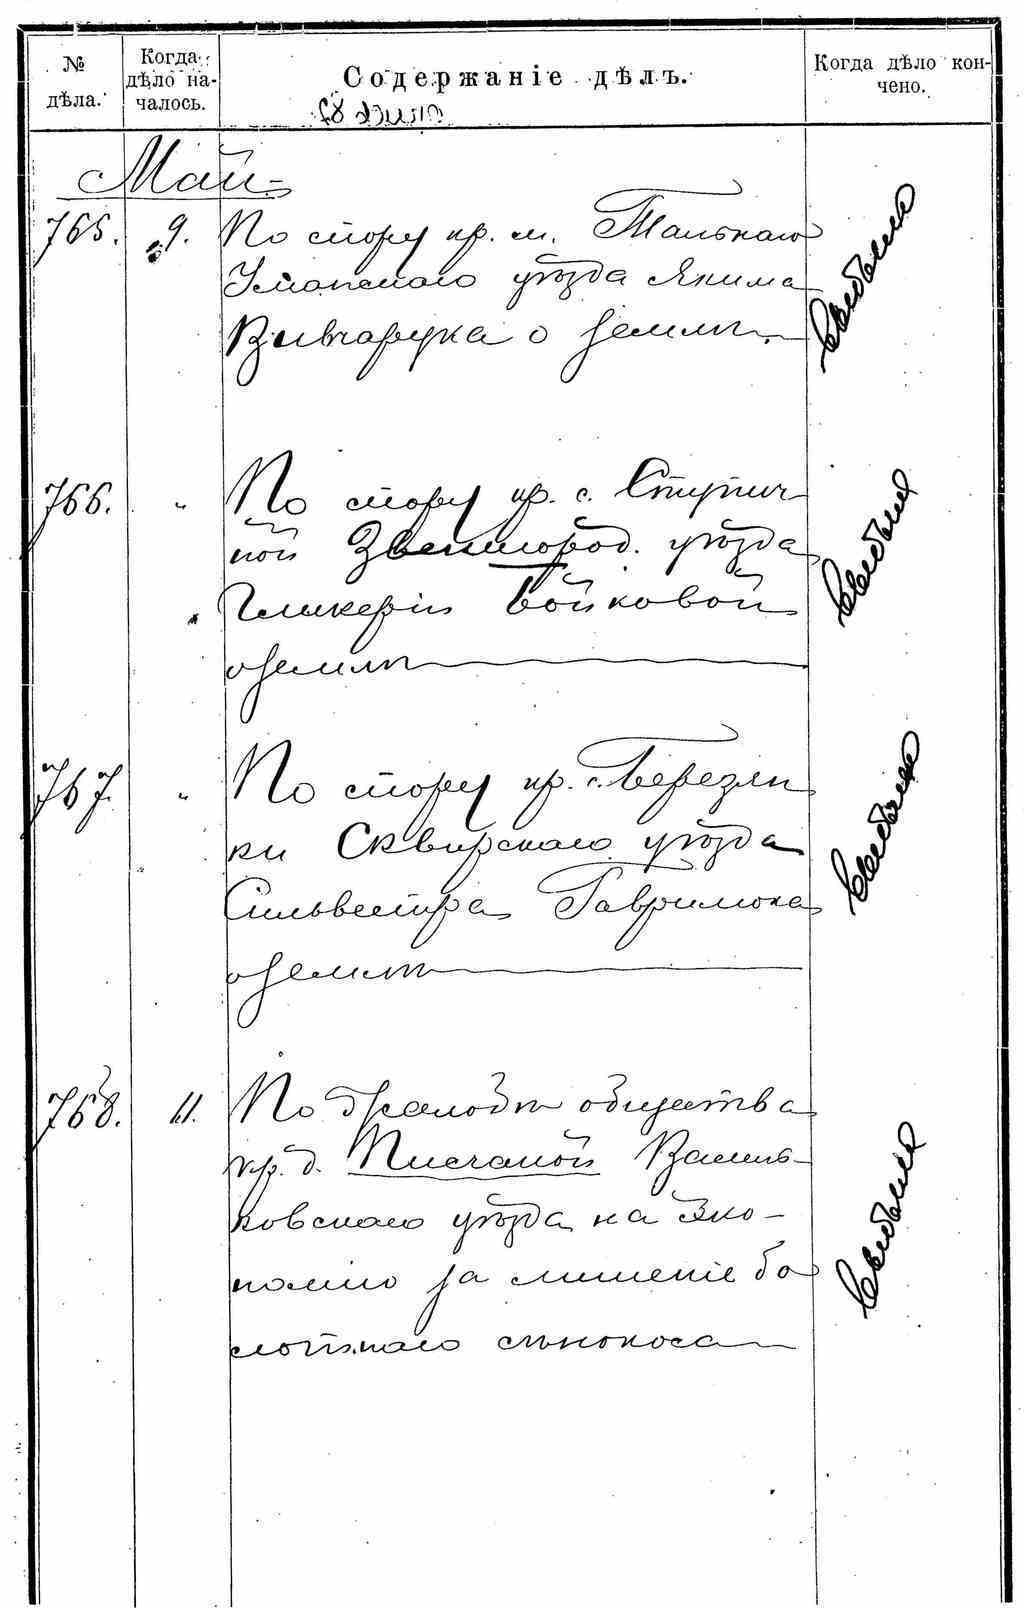 № дѣла.
Когда дѣло на-
чалось.
Содержаніе дѣлъ.
Когда дѣло кон-
чено.
Май
765. 9. По спору кр. м. Тальнаго
Уманскаго уѣзда Якима
Вивчарука о землѣ
766. " По спору кр. с. Ступич-
ной Звенигород. уѣзда
Гликеріи Бойковой
о землѣ
767. " По спору кр. с. Березян-
ки Сквирскаго уѣзда
Сильвестра Гаврилюка
о землѣ
768. 11. По жалобѣ общества
кр. д. Писчаной Василь-
ковскаго уѣзда на Эко-
номію за лишеніе бо-
лотнаго сѣнокоса